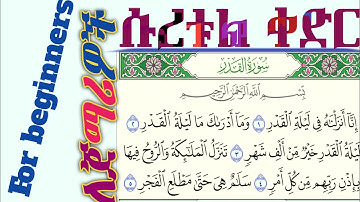 For beginners
ለጀማሪዎች
ሱረቱል ቀድር
سُورَةُ القَدْرِ
بِسْمِ اللَّهِ الرَّحْمَٰنِ الرَّحِيمِ
إِنَّا أَنزَلْنَٰهُ فِي لَيْلَةِ الْقَدْرِ ١ وَمَا أَدْرَىٰكَ مَا لَيْلَةُ الْقَدْرِ ٢
لَيْلَةُ الْقَدْرِ خَيْرٌ مِّنْ أَلْفِ شَهْرٍ ٣ تَنَزَّلُ الْمَلَٰئِكَةُ وَالرُّوحُ فِيهَا
بِإِذْنِ رَبِّهِم مِّن كُلِّ أَمْرٍ ٤ سَلَٰمٌ هِيَ حَتَّىٰ مَطْلَعِ الْفَجْرِ ٥